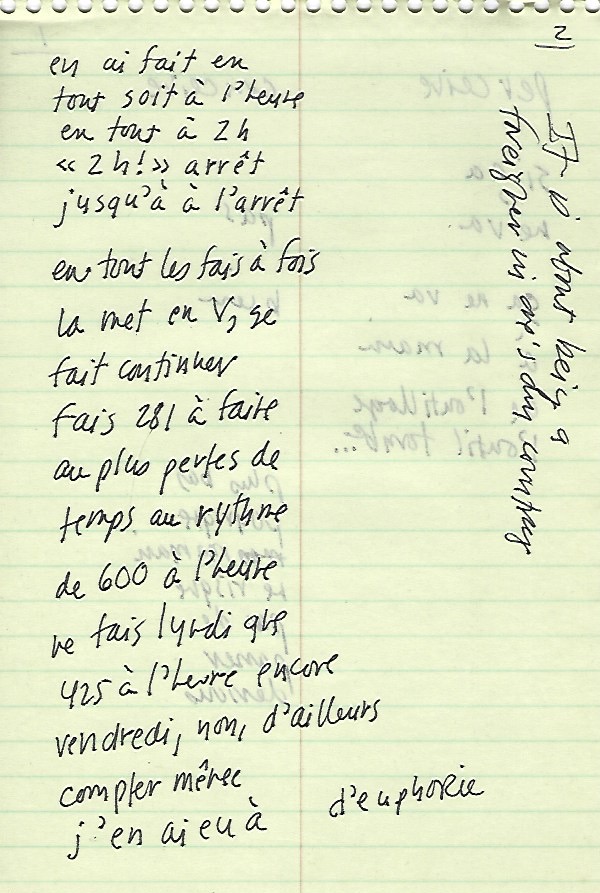 2)
en ai fait en
tout soit à l'heure
en tout à 2h
« 2h! » arrêt
jusqu'à à l'arrêt
en tout les fais à fois
la met en V, ge
fait continuer
fais 281 à faire
au plus pertes de
temps au rythme
de 600 à l'heure
ne fais lundi que
425 à l'heure encore
vendredi, non, d'ailleurs
compter même
j'en ai eu à d'euphorie
It is about being a
foreigner in one's own country